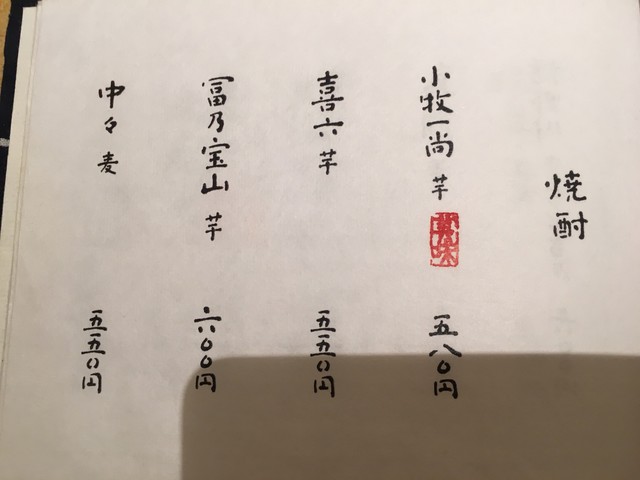 焼酎
小牧一尚 芋 五八〇円
喜六 芋 五五〇円
冨乃宝山 芋 六〇〇円
中々 麦 五五〇円